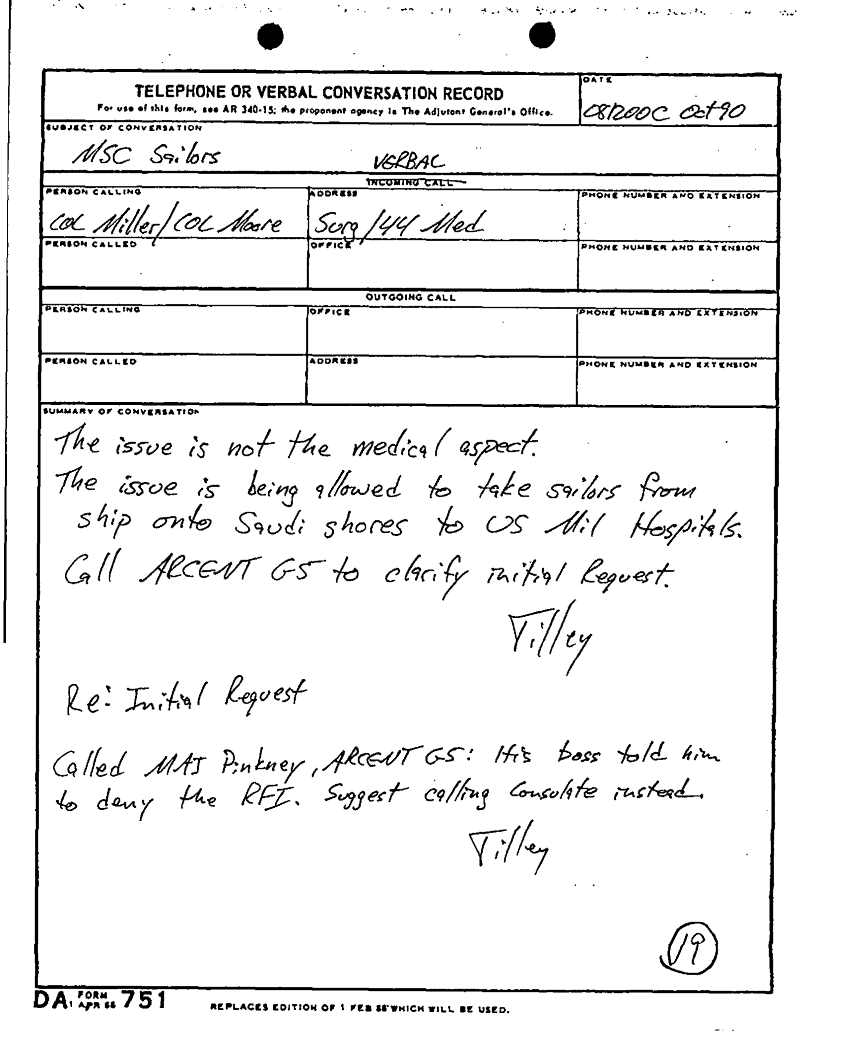 TELEPHONE OR VERBAL CONVERSATION RECORD
For use of this form, see AR 340-15; the proponent agency is The Adjutant General's Office.
DATE
081200C Oct 90
SUBJECT OF CONVERSATION
MSC Sailors VERBAL
INCOMING CALL
PERSON CALLING ADDRESS PHONE NUMBER AND EXTENSION
COL Miller/COL Moore Surg/44 Med
PERSON CALLED OFFICE PHONE NUMBER AND EXTENSION
OUTGOING CALL
PERSON CALLING OFFICE PHONE NUMBER AND EXTENSION
PERSON CALLED ADDRESS PHONE NUMBER AND EXTENSION
SUMMARY OF CONVERSATION
The issue is not the medical aspect.
The issue is being allowed to take sailors from
ship onto Saudi shores to US Mil Hospitals.
Call ARCENT G5 to clarify initial Request.
Tilley
Re: Initial Request
Called MAJ Pinkney, ARCENT G5: His boss told him
to deny the RFI. Suggest calling Consulate instead.
Tilley
19
DA FORM 1 APR 66 751 REPLACES EDITION OF 1 FEB 58 WHICH WILL BE USED.